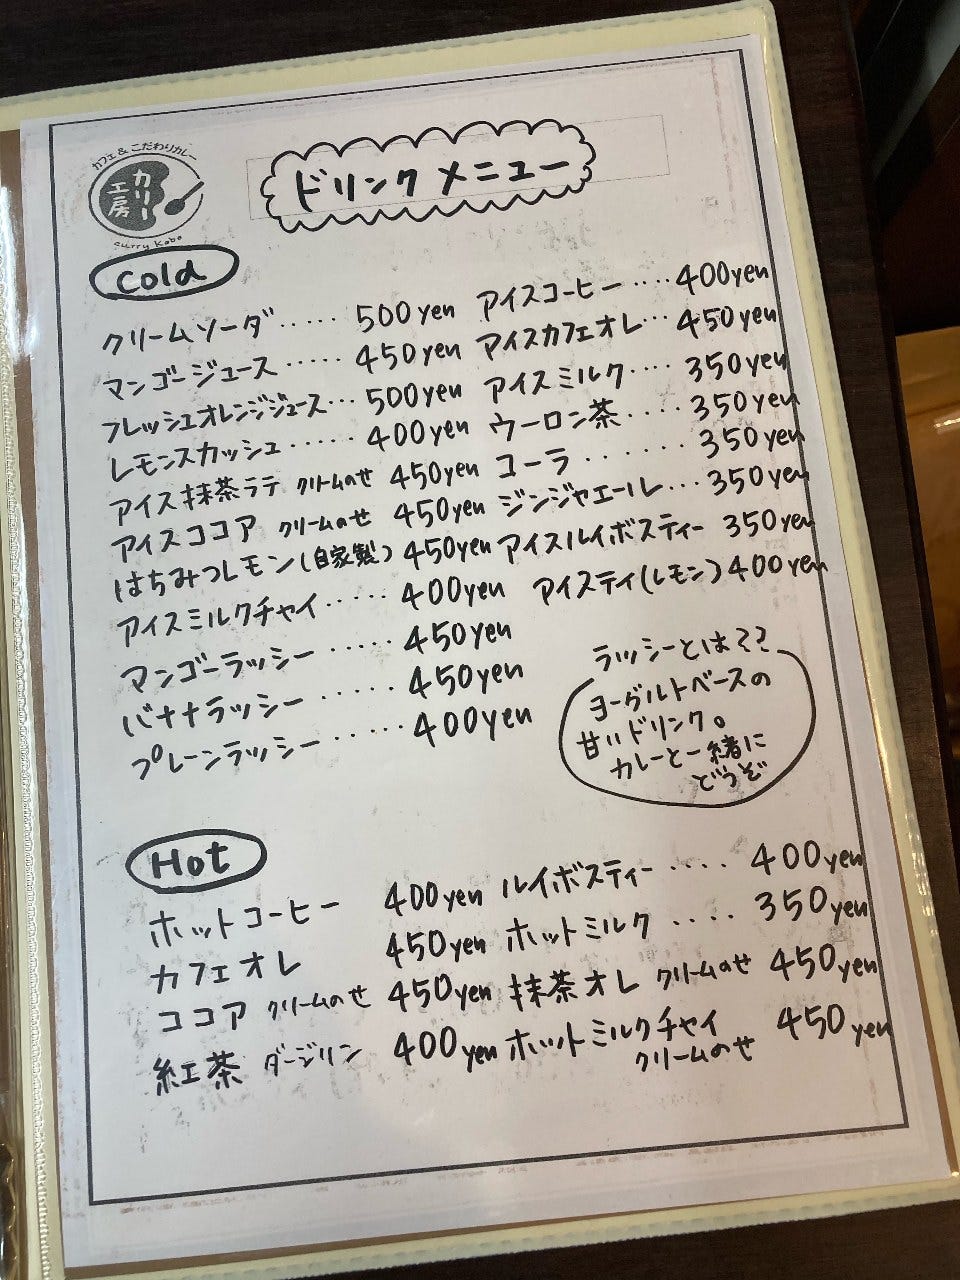 カフェ & こだわりカレー
カリー
工房
curry Kobo
ドリンク メニュー
Cold
クリームソーダ‥‥‥ 500yen
マンゴージュース‥‥‥ 450yen
フレッシュオレンジジュース… 500yen
レモンスカッシュ‥‥‥ 400yen
アイス抹茶ラテ クリームのせ 450yen
アイスココア クリームのせ 450yen
はちみつレモン(自家製) 450yen
アイスミルクチャイ‥‥‥ 400yen
マンゴーラッシー‥‥ 450yen
バナナラッシー‥‥‥ 450yen
プレーンラッシー‥‥‥ 400yen
アイスコーヒー‥‥ 400yen
アイスカフェオレ… 450yen
アイスミルク‥‥ 350yen
ウーロン茶‥‥‥ 350yen
コーラ‥‥‥‥ 350yen
ジンジャエール… 350yen
アイスルイボスティー 350yen
アイスティ(レモン) 400yen
ラッシーとは??
ヨーグルトベースの
甘いドリンク。
カレーと一緒に
どうぞ
Hot
ホットコーヒー 400yen
カフェオレ 450yen
ココア クリームのせ 450yen
紅茶 ダージリン 400yen
ルイボスティー‥‥ 400yen
ホットミルク‥‥ 350yen
抹茶オレ クリームのせ 450yen
ホットミルクチャイ 450yen
クリームのせ